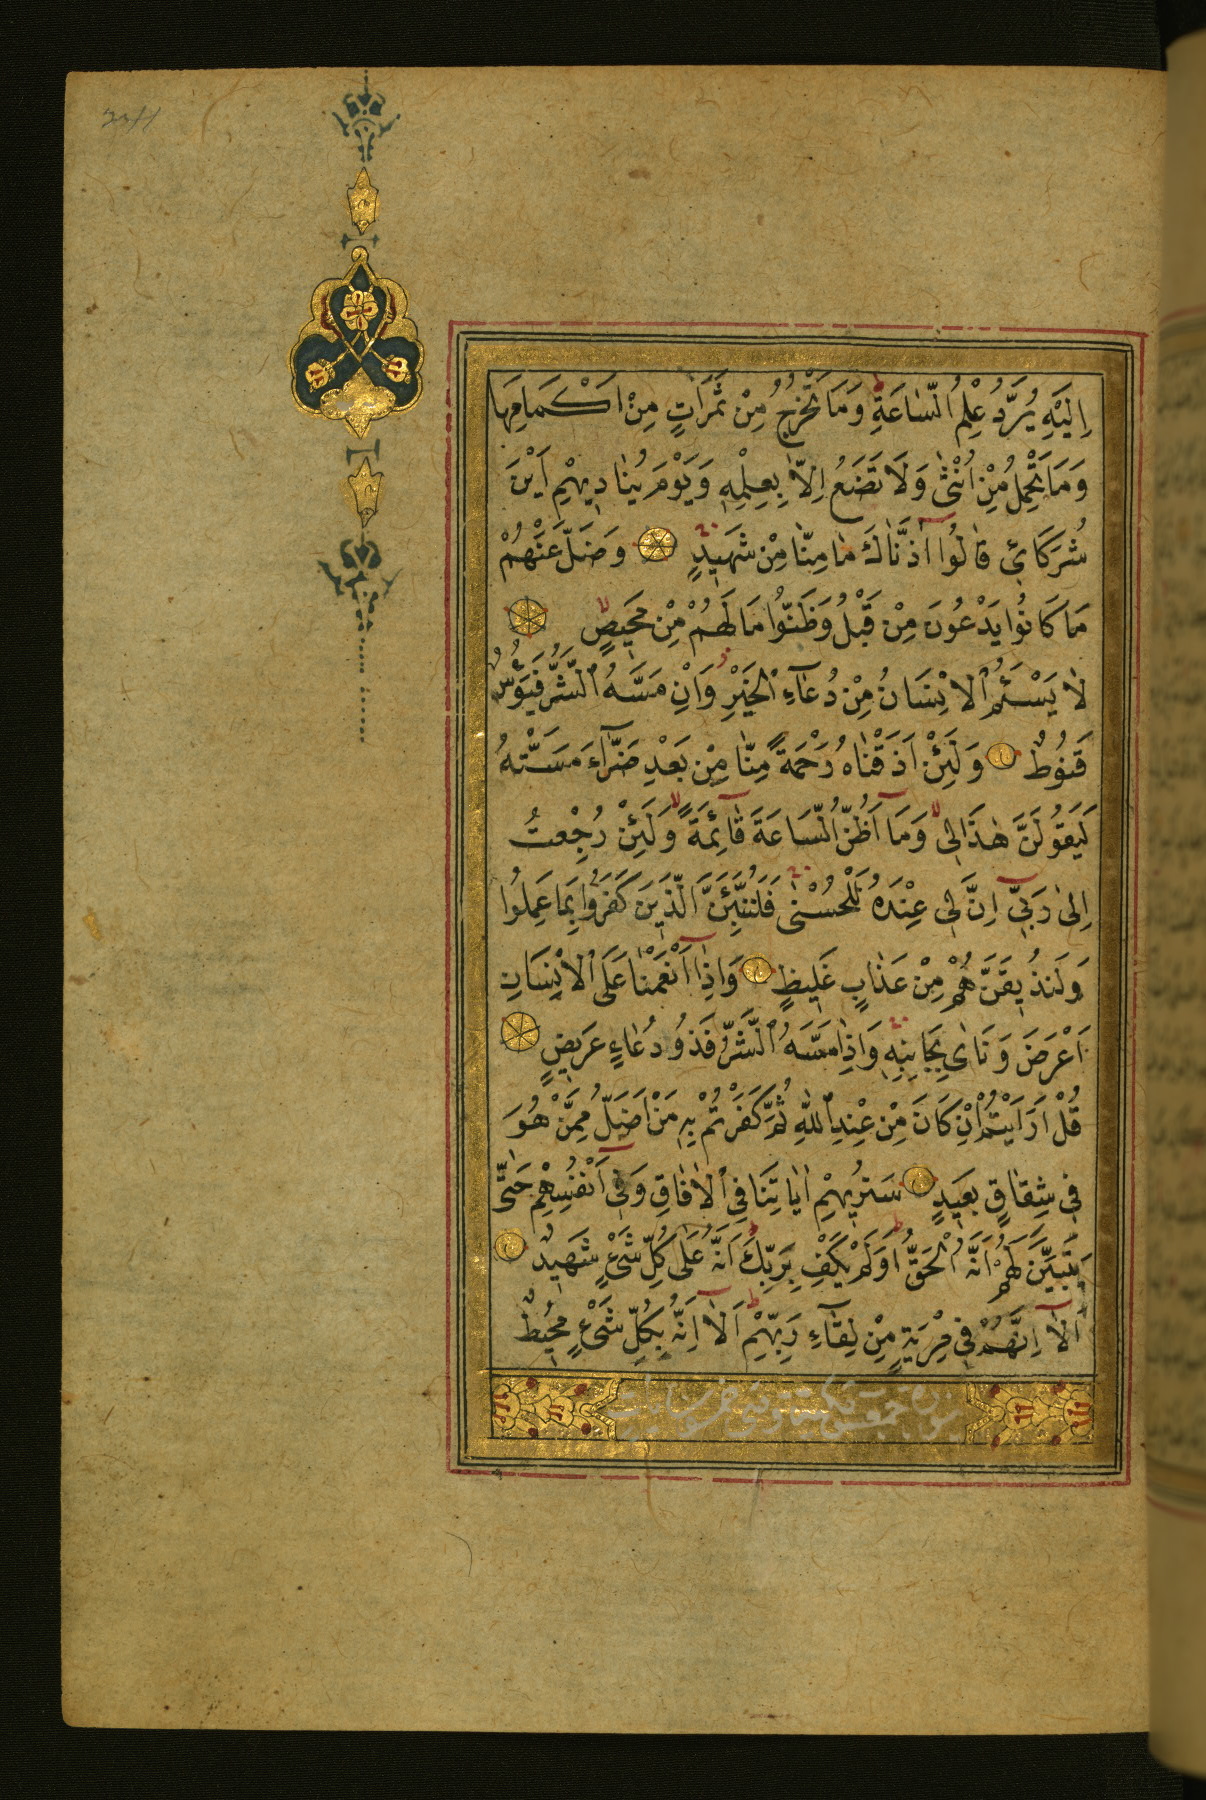 اِلَيْهِ يُرَدُّ عِلْمُ السَّاعَةِ وَمَا تَخْرُجُ مِنْ ثَمَرَاتٍ مِنْ اَكْمَامِهَا
وَمَا تَحْمِلُ مِنْ اُنْثٰى وَلَا تَضَعُ اِلَّا بِعِلْمِهِ وَيَوْمَ يُنَادِيهِمْ اَيْنَ
شُرَكَائِى قَالُوا اٰذَنَّاكَ مَا مِنَّا مِنْ شَهِيدٍ وَضَلَّ عَنْهُمْ
مَا كَانُوا يَدْعُونَ مِنْ قَبْلُ وَظَنُّوا مَا لَهُمْ مِنْ مَحِيصٍ
لَا يَسْئَمُ الْاِنْسَانُ مِنْ دُعَآءِ الْخَيْرِ وَاِنْ مَسَّهُ الشَّرُّ فَيَؤُسٌ
قَنُوطٌ وَلَئِنْ اَذَقْنَاهُ رَحْمَةً مِنَّا مِنْ بَعْدِ ضَرَّآءَ مَسَّتْهُ
لَيَقُولَنَّ هٰذَا لِى وَمَآ اَظُنُّ السَّاعَةَ قَآئِمَةً وَلَئِنْ رُجِعْتُ
اِلٰى رَبِّىٓ اِنَّ لِى عِنْدَهُ لَلْحُسْنٰى فَلَنُنَبِّئَنَّ الَّذِينَ كَفَرُوا بِمَا عَمِلُوا
وَلَنُذِيقَنَّهُمْ مِنْ عَذَابٍ غَلِيظٍ وَاِذَآ اَنْعَمْنَا عَلَى الْاِنْسَانِ
اَعْرَضَ وَنَاٰى بِجَانِبِهِ وَاِذَا مَسَّهُ الشَّرُّ فَذُو دُعَآءٍ عَرِيضٍ
قُلْ اَرَاَيْتُمْ اِنْ كَانَ مِنْ عِنْدِ اللّٰهِ ثُمَّ كَفَرْتُمْ بِهِ مَنْ اَضَلُّ مِمَّنْ هُوَ
فِى شِقَاقٍ بَعِيدٍ سَنُرِيهِمْ اٰيَاتِنَا فِى الْاٰفَاقِ وَفِىٓ اَنْفُسِهِمْ حَتّٰى
يَتَبَيَّنَ لَهُمْ اَنَّهُ الْحَقُّ اَوَلَمْ يَكْفِ بِرَبِّكَ اَنَّهُ عَلٰى كُلِّ شَىْءٍ شَهِيدٌ
اَلَآ اِنَّهُمْ فِى مِرْيَةٍ مِنْ لِقَآءِ رَبِّهِمْ اَلَآ اِنَّهُ بِكُلِّ شَىْءٍ مُحِيطٌ